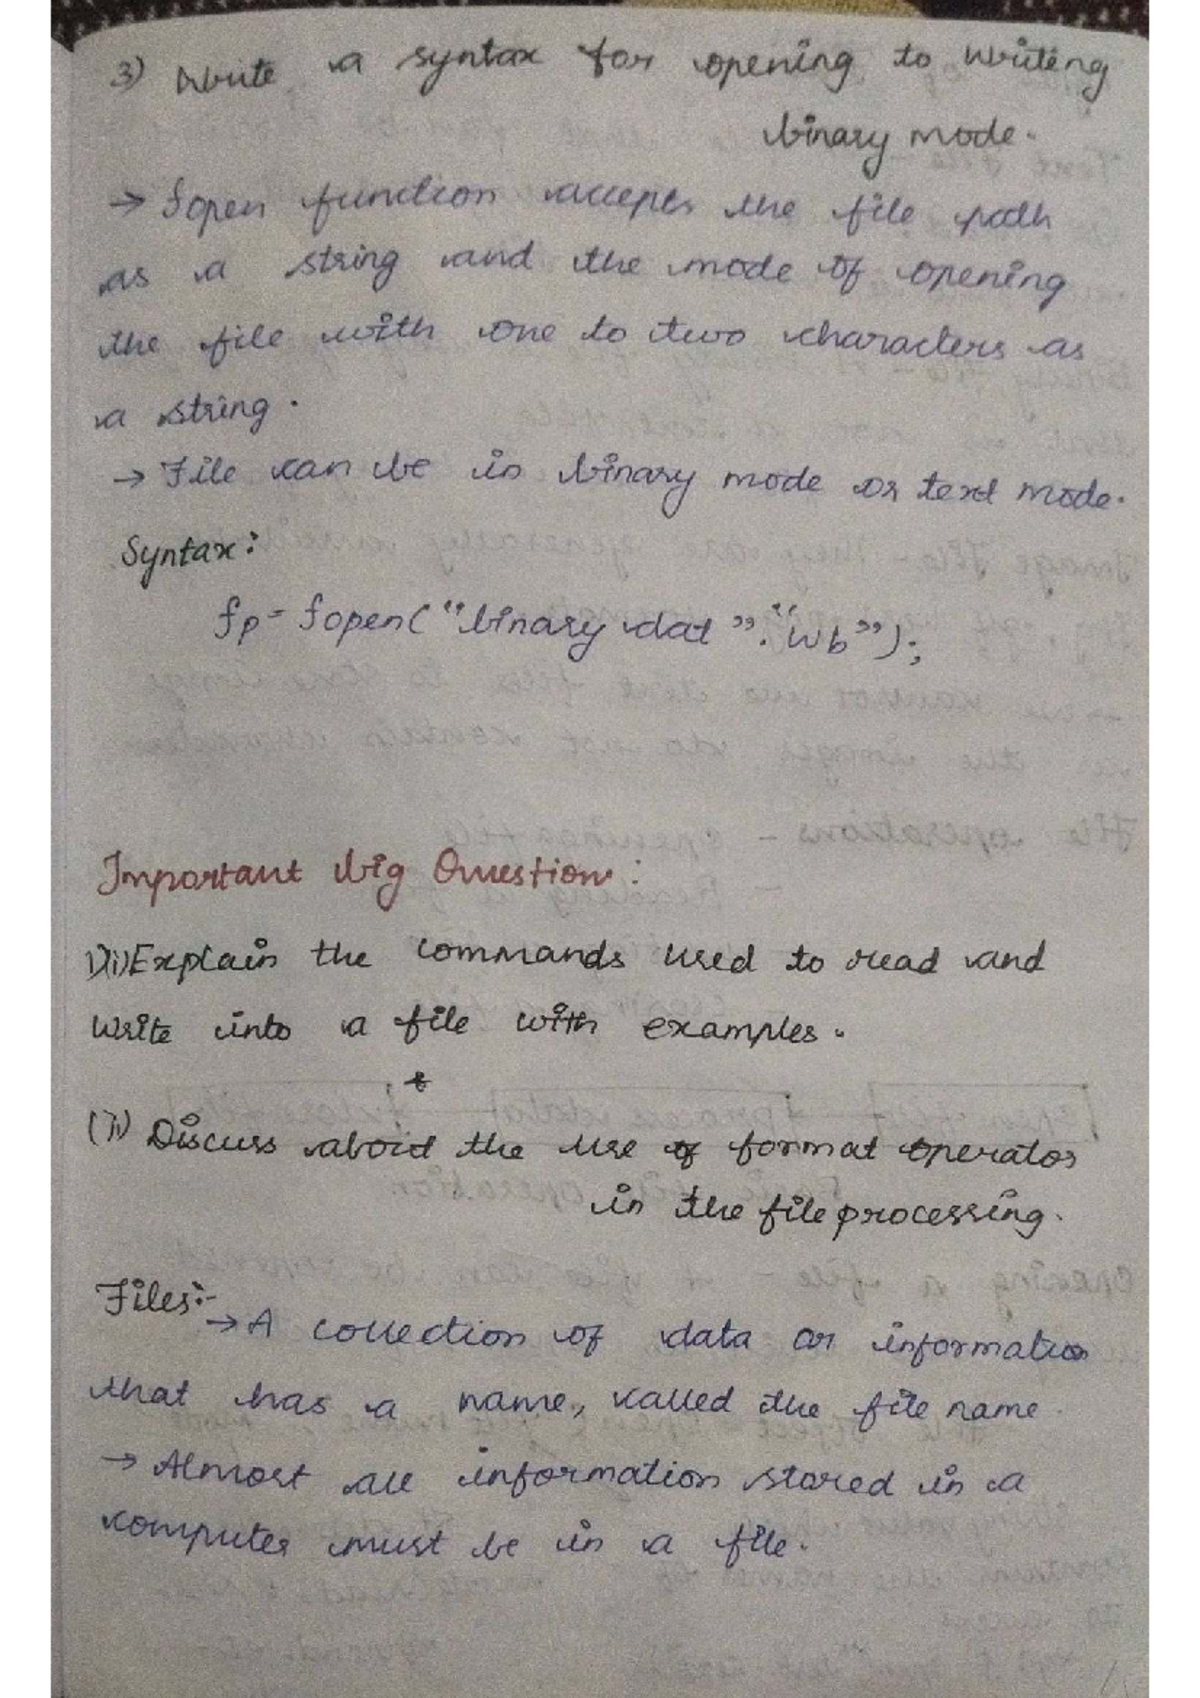 3) Write a syntax for opening to writing
binary mode.
→ fopen function accepts the file path
as a string and the mode of opening
the file with one to two characters as
a string.
→ File can be in binary mode or text mode.
Syntax:
fp = fopen("binary dat"."wb");
Important big Question:
1)i)Explain the commands used to read and
write into a file with examples.
(ii) Discuss about the use of format operator
in the file processing.
Files:-
→ A collection of data or information
that has a name, called the file name.
→ Almost all information stored in a
computer must be in a file.